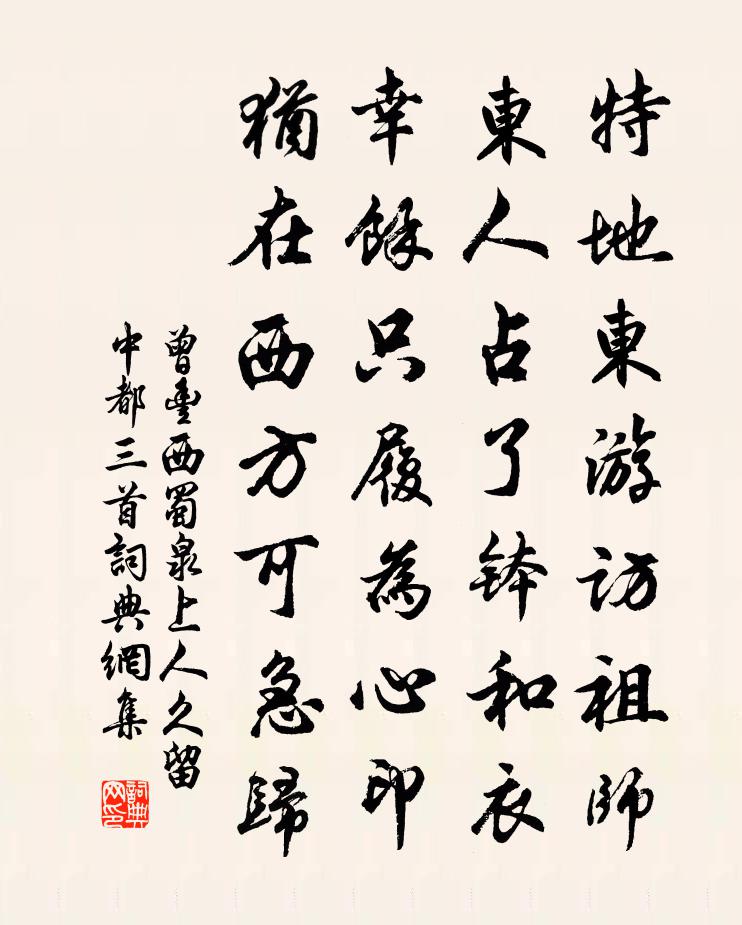 特地東游訪祖師
東人占了鉢和衣
幸餘只履為心印
猶在西方可急歸
曾豐西蜀泉上人久留
中都三首詞典網集
詞典
网印